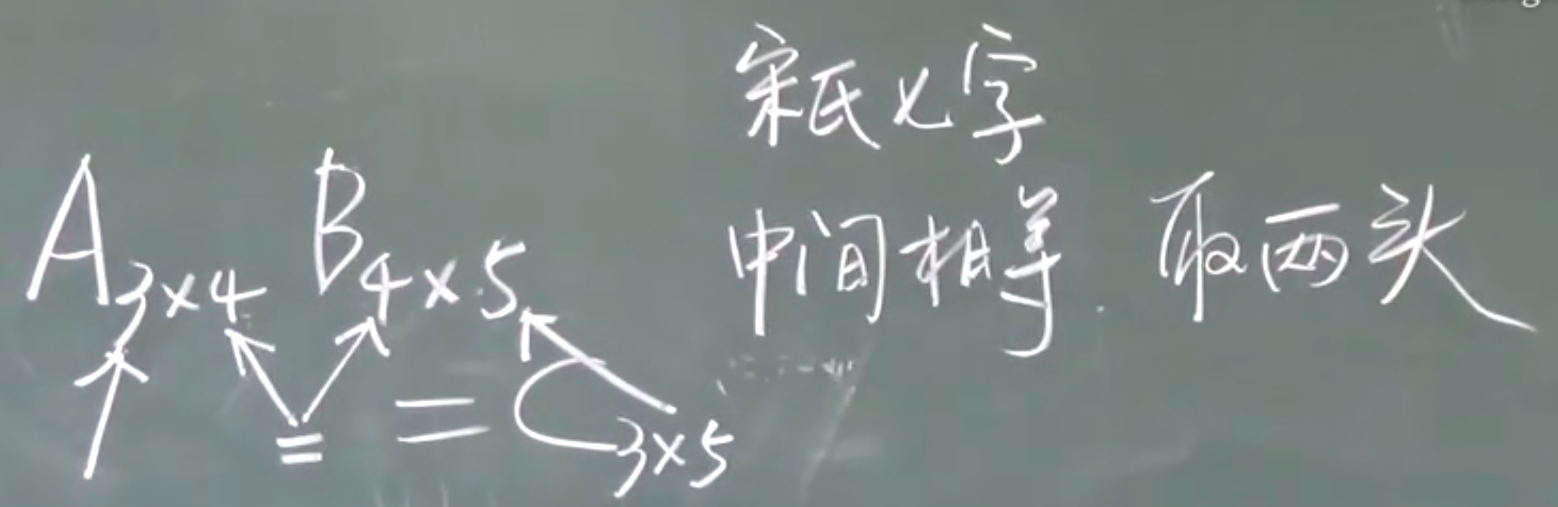 宋氏七字
中间相等.取两头
A₃ₓ₄ B₄ₓ₅ = C₃ₓ₅
=